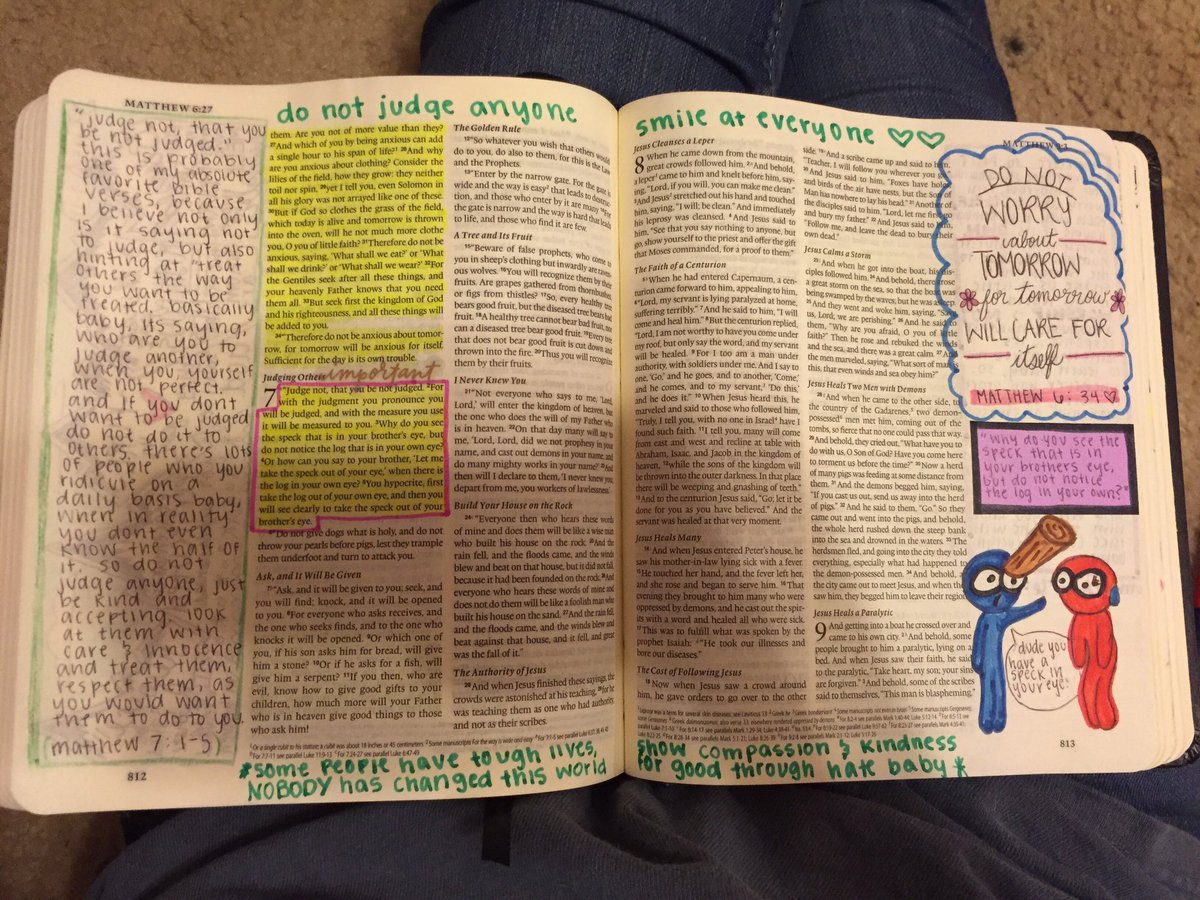 MATTHEW 6:27
do not judge anyone
"judge not, that you
be not judged."
this is probably
one of my absolute
favorite bible
verses, because
I believe not only
is it saying not
to judge, but also
hinting at "treat
others the way
you want to be
treated. basically
baby, its saying,
who are you to
judge another,
when you, yourself
are not perfect.
and if you dont
want to be judged
do not do it to
others. there's lots
of people who you
ridicule on a
daily basis baby,
when in reality
you dont even
know the half of
it. so do not
judge anyone, just
be kind and
accepting. look
at them with
care & innocence
and treat them,
respect them, as
you would want
them to do to you.
(matthew 7:1-5)
them. Are you not of more value than they?
27And which of you by being anxious can add
a single hour to his span of life? 28And why
are you anxious about clothing? Consider the
lilies of the field, how they grow: they neither
toil nor spin, 29yet I tell you, even Solomon in
all his glory was not arrayed like one of these.
30But if God so clothes the grass of the field,
which today is alive and tomorrow is thrown
into the oven, will he not much more clothe
you, O you of little faith? 31Therefore do not be
anxious, saying, 'What shall we eat?' or 'What
shall we drink?' or 'What shall we wear?' 32For
the Gentiles seek after all these things, and
your heavenly Father knows that you need
them all. 33But seek first the kingdom of God
and his righteousness, and all these things will
be added to you.
34"Therefore do not be anxious about tomor-
row, for tomorrow will be anxious for itself.
Sufficient for the day is its own trouble.
Judging Others important
7 "Judge not, that you be not judged. 2For
with the judgment you pronounce you
will be judged, and with the measure you use
it will be measured to you. 3Why do you see
the speck that is in your brother's eye, but
do not notice the log that is in your own eye?
4Or how can you say to your brother, 'Let me
take the speck out of your eye,' when there is
the log in your own eye? 5You hypocrite, first
take the log out of your own eye, and then you
will see clearly to take the speck out of your
brother's eye.
6"Do not give dogs what is holy, and do not
throw your pearls before pigs, lest they trample
them underfoot and turn to attack you.
Ask, and It Will Be Given
7"Ask, and it will be given to you; seek, and
you will find; knock, and it will be opened
to you. 8For everyone who asks receives, and
the one who seeks finds, and to the one who
knocks it will be opened. 9Or which one of
you, if his son asks him for bread, will give
him a stone? 10Or if he asks for a fish, will
give him a serpent? 11If you then, who are
evil, know how to give good gifts to your
children, how much more will your Father
who is in heaven give good things to those
who ask him!
The Golden Rule
12"So whatever you wish that others would
do to you, do also to them, for this is the Law
and the Prophets.
13"Enter by the narrow gate. For the gate is
wide and the way is easy that leads to destruc-
tion, and those who enter by it are many. 14For
the gate is narrow and the way is hard that leads
to life, and those who find it are few.
A Tree and Its Fruit
15"Beware of false prophets, who come to
you in sheep's clothing but inwardly are raven-
ous wolves. 16You will recognize them by their
fruits. Are grapes gathered from thornbushes,
or figs from thistles? 17So, every healthy tree
bears good fruit, but the diseased tree bears bad
fruit. 18A healthy tree cannot bear bad fruit, nor
can a diseased tree bear good fruit. 19Every tree
that does not bear good fruit is cut down and
thrown into the fire. 20Thus you will recognize
them by their fruits.
I Never Knew You
21"Not everyone who says to me, 'Lord,
Lord,' will enter the kingdom of heaven, but
the one who does the will of my Father who
is in heaven. 22On that day many will say to
me, 'Lord, Lord, did we not prophesy in your
name, and cast out demons in your name, and
do many mighty works in your name?' 23And
then will I declare to them, 'I never knew you;
depart from me, you workers of lawlessness.'
Build Your House on the Rock
24"Everyone then who hears these words
of mine and does them will be like a wise man
who built his house on the rock. 25And the
rain fell, and the floods came, and the winds
blew and beat on that house, but it did not fall,
because it had been founded on the rock. 26And
everyone who hears these words of mine and
does not do them will be like a foolish man who
built his house on the sand. 27And the rain fell,
and the floods came, and the winds blew and
beat against that house, and it fell, and great
was the fall of it."
The Authority of Jesus
28And when Jesus finished these sayings, the
crowds were astonished at his teaching, 29for he
was teaching them as one who had authority,
and not as their scribes.
812
*some people have tough lives,
NOBODY has changed this world
smile at everyone ♡♡
Jesus Cleanses a Leper
8 When he came down from the mountain,
great crowds followed him. 2And behold,
a leper came to him and knelt before him, say-
ing, "Lord, if you will, you can make me clean."
3And Jesus stretched out his hand and touched
him, saying, "I will; be clean." And immediately
his leprosy was cleansed. 4And Jesus said to
him, "See that you say nothing to anyone, but
go, show yourself to the priest and offer the gift
that Moses commanded, for a proof to them."
The Faith of a Centurion
5When he had entered Capernaum, a cen-
turion came forward to him, appealing to him,
6"Lord, my servant is lying paralyzed at home,
suffering terribly." 7And he said to him, "I will
come and heal him." 8But the centurion replied,
"Lord, I am not worthy to have you come under
my roof, but only say the word, and my servant
will be healed. 9For I too am a man under
authority, with soldiers under me. And I say to
one, 'Go,' and he goes, and to another, 'Come,'
and he comes, and to my servant, 'Do this,'
and he does it." 10When Jesus heard this, he
marveled and said to those who followed him,
"Truly, I tell you, with no one in Israel have I
found such faith. 11I tell you, many will come
from east and west and recline at table with
Abraham, Isaac, and Jacob in the kingdom of
heaven, 12while the sons of the kingdom will
be thrown into the outer darkness. In that place
there will be weeping and gnashing of teeth."
13And to the centurion Jesus said, "Go; let it be
done for you as you have believed." And the
servant was healed at that very moment.
Jesus Heals Many
14And when Jesus entered Peter's house, he
saw his mother-in-law lying sick with a fever.
15He touched her hand, and the fever left her,
and she rose and began to serve him. 16That
evening they brought to him many who were
oppressed by demons, and he cast out the spir-
its with a word and healed all who were sick.
17This was to fulfill what was spoken by the
prophet Isaiah: "He took our illnesses and
bore our diseases."
The Cost of Following Jesus
18Now when Jesus saw a crowd around
him, he gave orders to go over to the other
side. 19And a scribe came up and said to him,
"Teacher, I will follow you wherever you go."
20And Jesus said to him, "Foxes have holes,
and birds of the air have nests, but the Son of
Man has nowhere to lay his head." 21Another of
the disciples said to him, "Lord, let me first go
and bury my father." 22And Jesus said to him,
"Follow me, and leave the dead to bury their
own dead."
Jesus Calms a Storm
23And when he got into the boat, his dis-
ciples followed him. 24And behold, there arose
a great storm on the sea, so that the boat was
being swamped by the waves; but he was asleep.
25And they went and woke him, saying, "Save
us, Lord; we are perishing." 26And he said to
them, "Why are you afraid, O you of little
faith?" Then he rose and rebuked the winds
and the sea, and there was a great calm. 27And
the men marveled, saying, "What sort of man is
this, that even winds and sea obey him?"
Jesus Heals Two Men with Demons
28And when he came to the other side, to
the country of the Gadarenes, two demon-
possessed men met him, coming out of the
tombs, so fierce that no one could pass that way.
29And behold, they cried out, "What have you to
do with us, O Son of God? Have you come here
to torment us before the time?" 30Now a herd
of many pigs was feeding at some distance from
them. 31And the demons begged him, saying,
"If you cast us out, send us away into the herd
of pigs." 32And he said to them, "Go." So they
came out and went into the pigs, and behold,
the whole herd rushed down the steep bank
into the sea and drowned in the waters. 33The
herdsmen fled, and going into the city they told
everything, especially what had happened to
the demon-possessed men. 34And behold, all
the city came out to meet Jesus, and when they
saw him, they begged him to leave their region.
Jesus Heals a Paralytic
9 And getting into a boat he crossed over and
came to his own city. 2And behold, some
people brought to him a paralytic, lying on a
bed. And when Jesus saw their faith, he said
to the paralytic, "Take heart, my son; your sins
are forgiven." 3And behold, some of the scribes
said to themselves, "This man is blaspheming."
DO NOT
WORRY
about
TOMORROW
for tomorrow
WILL CARE FOR
itself
MATTHEW 6:34♡
"Why do you see the
speck that is in
your brothers eye,
but do not notice
the log in your own?"
dude you
have a
speck in
your eye
show compassion & kindness
for good through hate baby*
813